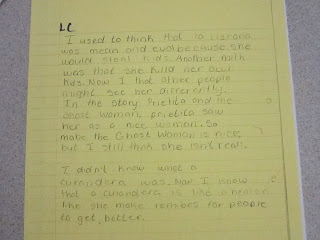 LC
I used to think that la llorona
was mean and evil because she
would steal kids. Another myth
was that she killd her own
kids. Now I that other people
might see her differently.
In the story Prietita and the
Ghost woman, prietita saw
her as a nice woman. So
make the Ghost Woman is nice
but I still think she isn't real.
I didn't know what a
curandera was. Now I know
that a curandera is like a
like she make for people
to get better.